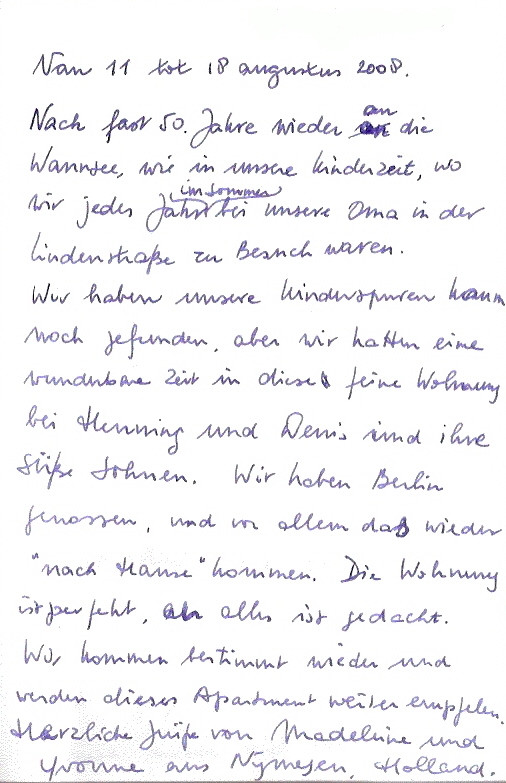 Van 11 tot 18 augustus 2008.
Nach fast 50. Jahre wieder an die
Wannsee, wie in unsere Kinderzeit, wo
wir jedes Jahr im Sommer bei unsere Oma in der
Lindenstraße zu Besuch waren.
Wir haben unsere Kinderspuren kaum
noch gefunden, aber wir hatten eine
wunderbare Zeit in diese feine Wohnung
bei Henning und Denis und ihre
süße Sohnen. Wir haben Berlin
genossen, und vor allem das wieder
"nach Hause" kommen. Die Wohnung
ist perfekt, an alles ist gedacht.
Wir kommen bestimmt wieder und
werden dieses Apartment weiter empfelen.
Herzliche Grüße von Madeleine und
Yvonne aus Nijmegen, Holland.